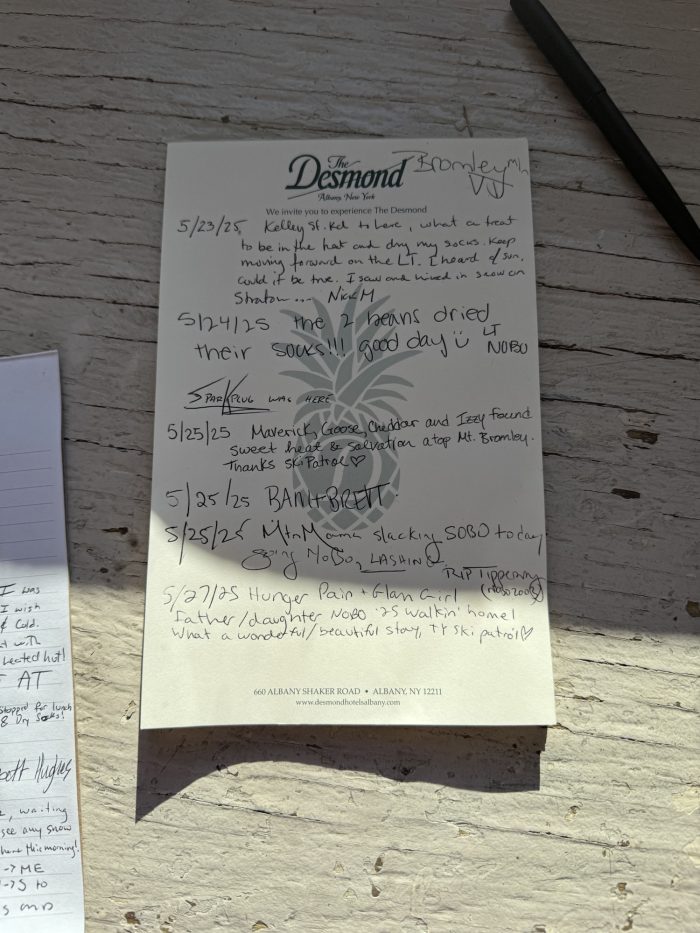 The
Desmond
Albany, New York
Bromley Mtn
VT
We invite you to experience The Desmond
5/23/25 Kelley St. Rd to here, what a treat
to be in the hut and dry my socks. Keep
moving forward on the LT. I heard of sun,
could it be true. I saw and hiked in snow on
Straton... Nick M
5/24/25 the 2 beans dried
their socks!!! good day LT
NOBO
SPARKPLUG WAS HERE
5/25/25 Maverick, Goose, Cheddar and Izzy found
sweet heat & salvation atop Mt. Bromley.
Thanks Ski Patrol ♡
5/25/25 BRETT.
5/25/25 MtnMama slacking SOBO today
going NOBO, LASHING
TRIP Tippecany
(NOBO 2003)
5/27/25 Hunger Pain + Glam Girl
father/daughter NOBO '25 walkin' home!
What a wonderful/beautiful stay, TY ski patrol ♡
660 ALBANY SHAKER ROAD • ALBANY, NY 12211
www.desmondhotelsalbany.com
I was
I wish
& Cold.
heated hut!
AT
stopped for lunch
& Dry Socks!
Hughes
, waiting
see any snow
here this morning!
-> ME
-> S to